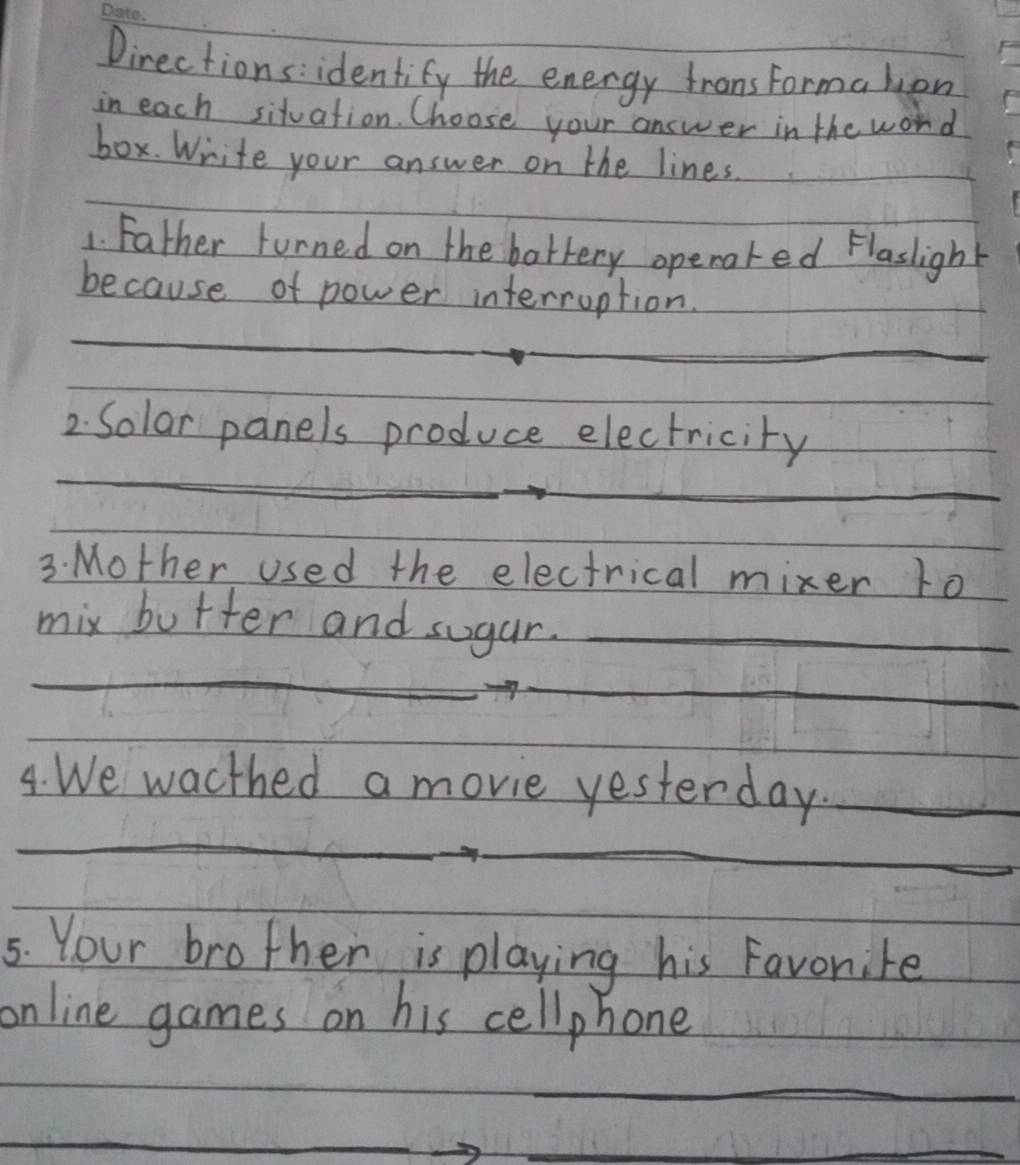 Date.
Directions: identify the energy transformation
in each situation. Choose your answer in the word
box. Write your answer on the lines.
1. Father turned on the battery operated Flaslight
because of power interruption.
2. Solar panels produce electricity
3. Mother used the electrical mixer to
mix butter and sugar.
4. We wacthed a movie yesterday.
5. Your brother is playing his Favorite
online games on his cellphone